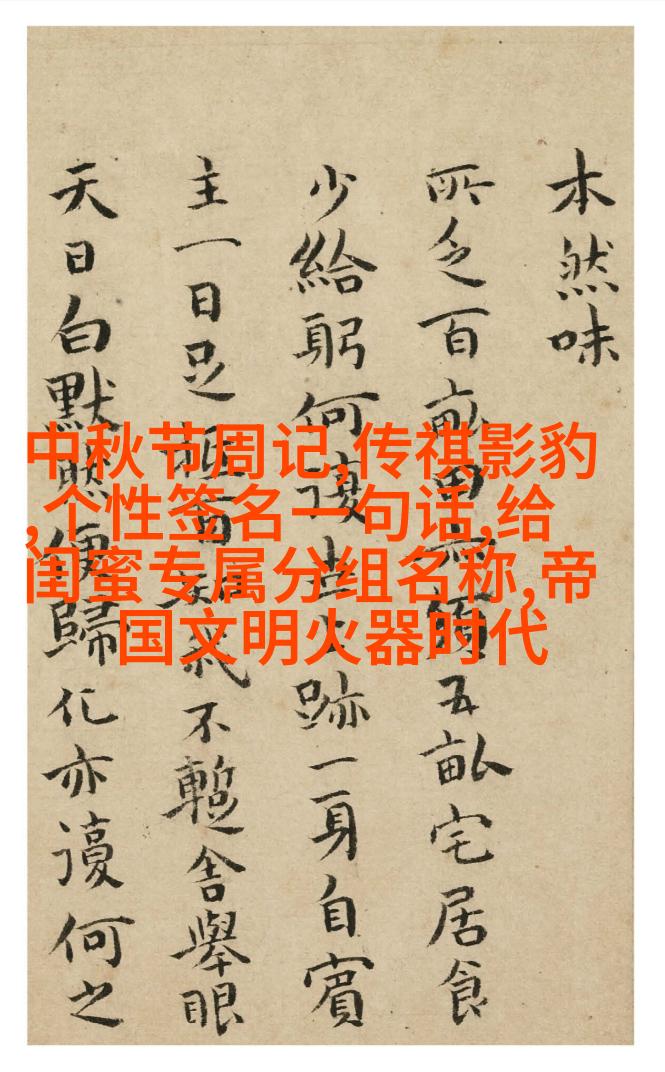 本然味
所乏百畝田五畝宅居食
少給躬何復跡一身自賓
主一日足不蹔舍舉眼
天日白默然便歸化亦復何之
中秋节周记,传祺影豹
,个性签名一句话,给
闺蜜专属分组名称,帝
国文明火器时代